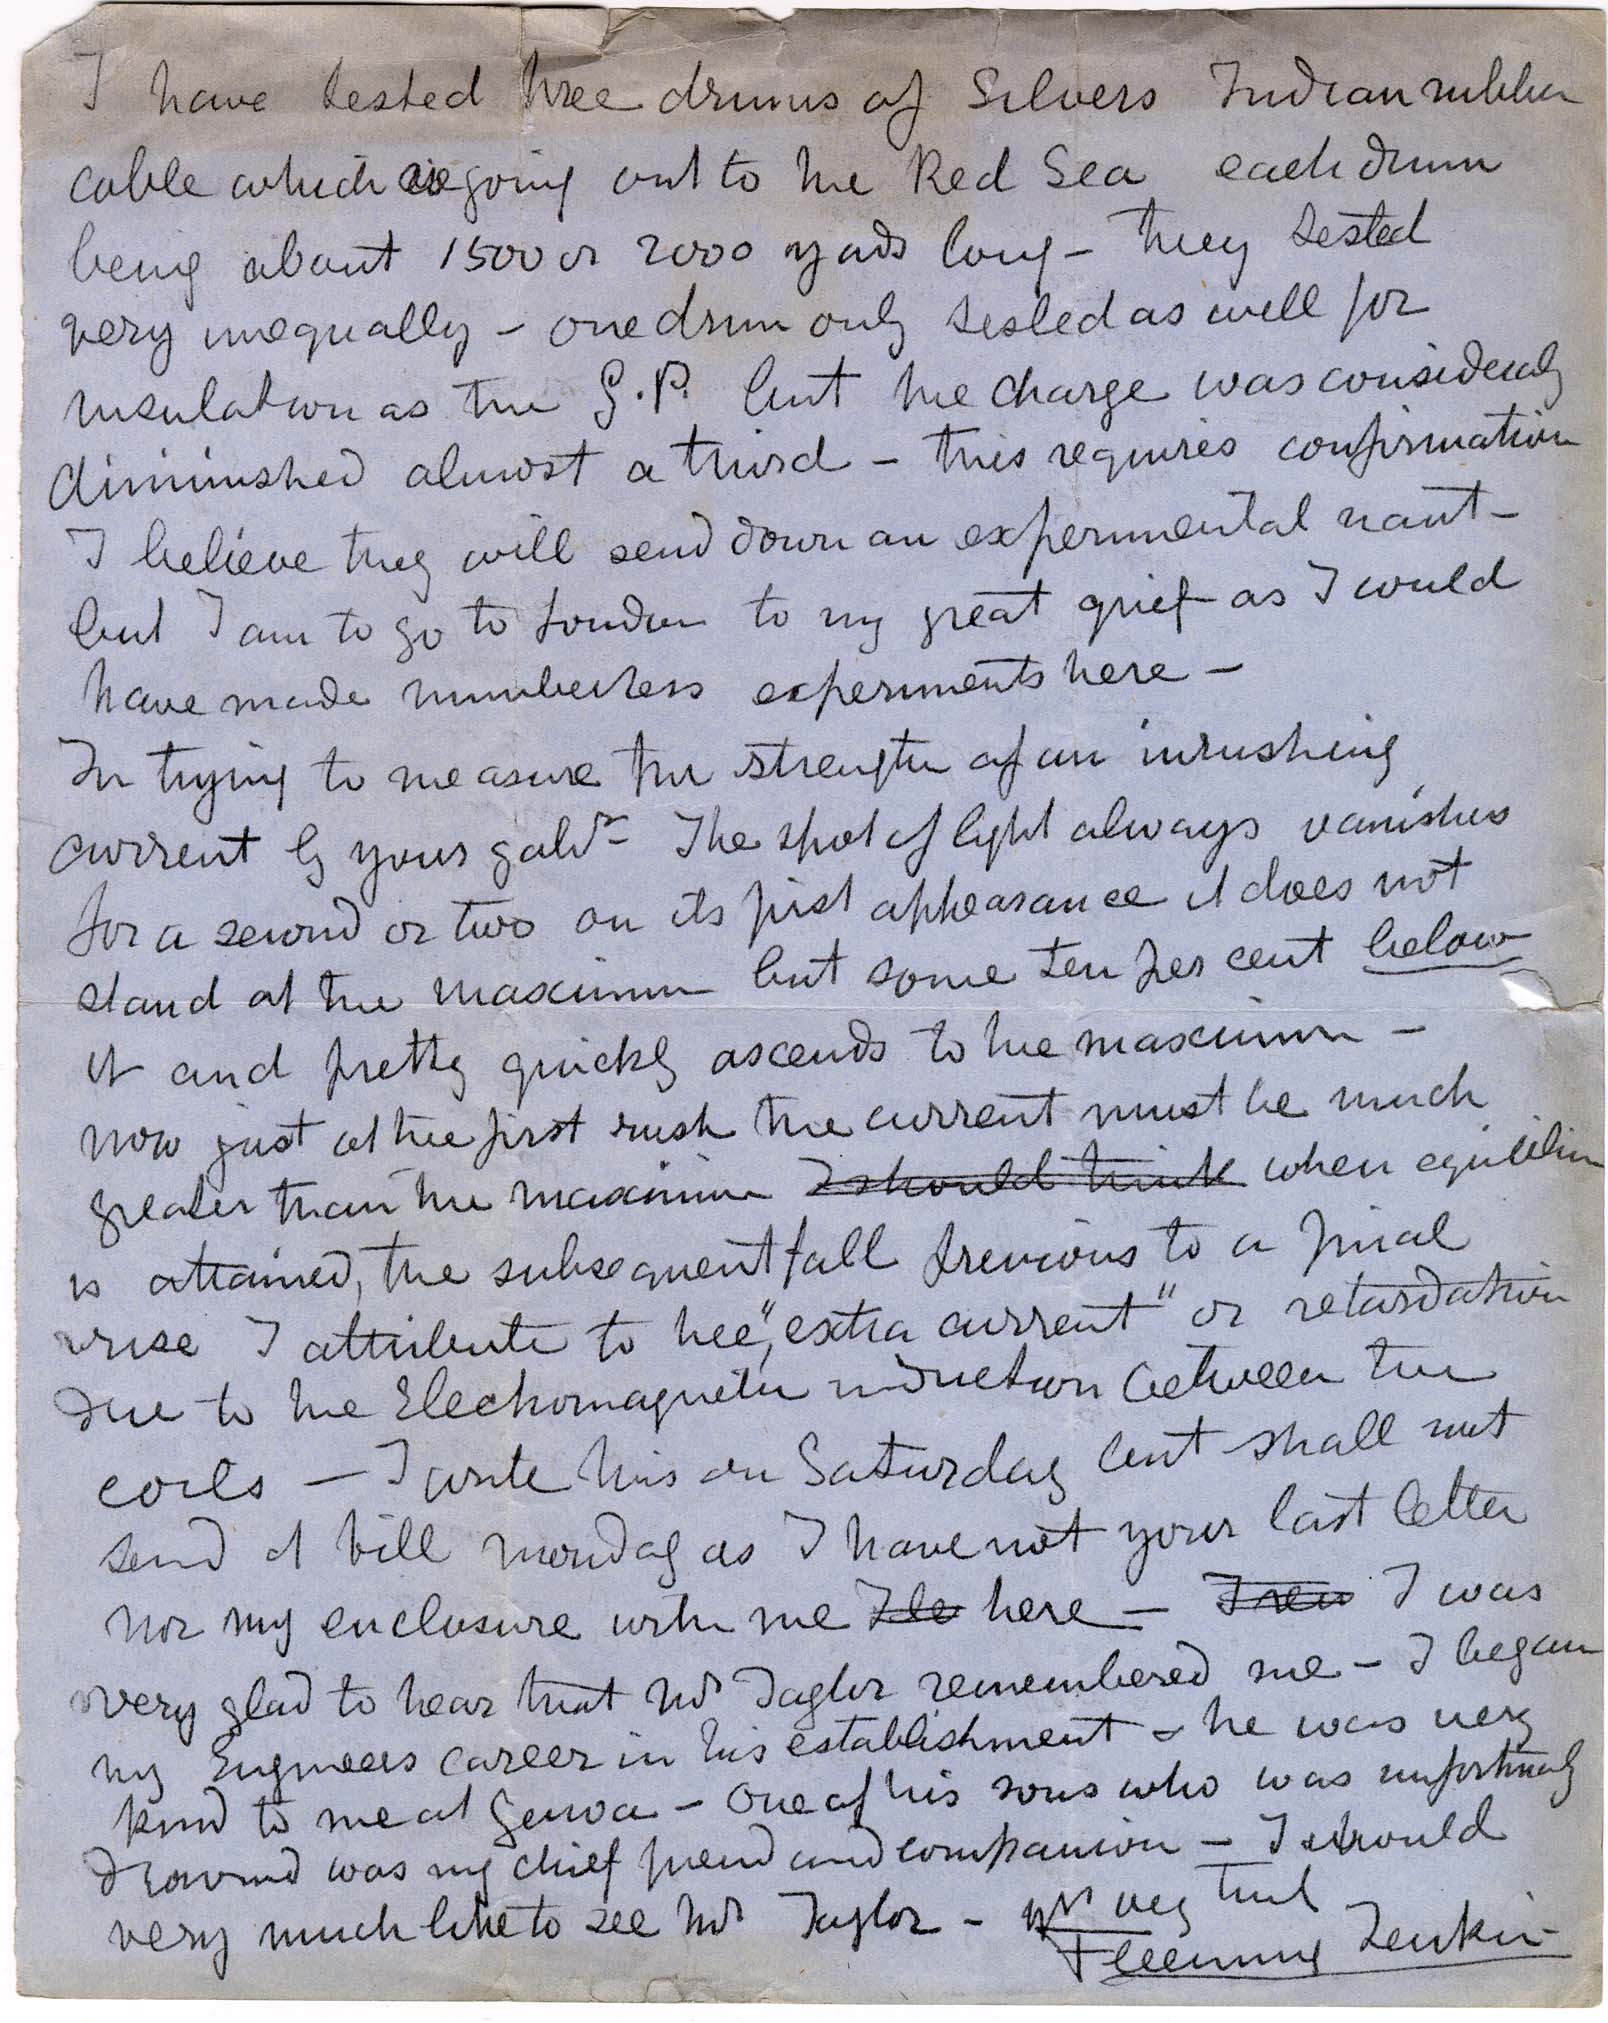 I have tested three drums of Silvers Indian rubber
cable which is going out to the Red Sea each drum
being about 1500 or 2000 yards long – they tested
very unequally – one drum only tested as well for
insulation as the G.P. but the charge was considerably
diminished almost a third – this requires confirmation
I believe they will send down an experimental naut –
but I am to go to London to my great grief as I would
have made numberless experiments here –
In trying to measure the strength of an inrushing
current by your galvr – The spot of light always vanishes
for a second or two on its first appearance it does not
stand at the maximum but some ten per cent below
it and pretty quickly ascends to the maximum –
now just at the first rush the current must be much
greater than the maximum I should think when equilibrium
is attained, the subsequent fall previous to a final
rise I attribute to the "extra current" or retardation
due to the Electromagnetic induction between the
coils – I write this on Saturday but shall not
send it till Monday as I have not your last letter
nor my enclosure with me I le here – I rem I was
very glad to hear that Mr Taylor remembered me – I began
my Engineers career in his establishment & he was very
kind to me at Genoa – One of his sons who was unfortunately
drowned was my chief friend and companion – I should
very much like to see Mr Taylor – Yrs very truly
Fleeming Jenkin